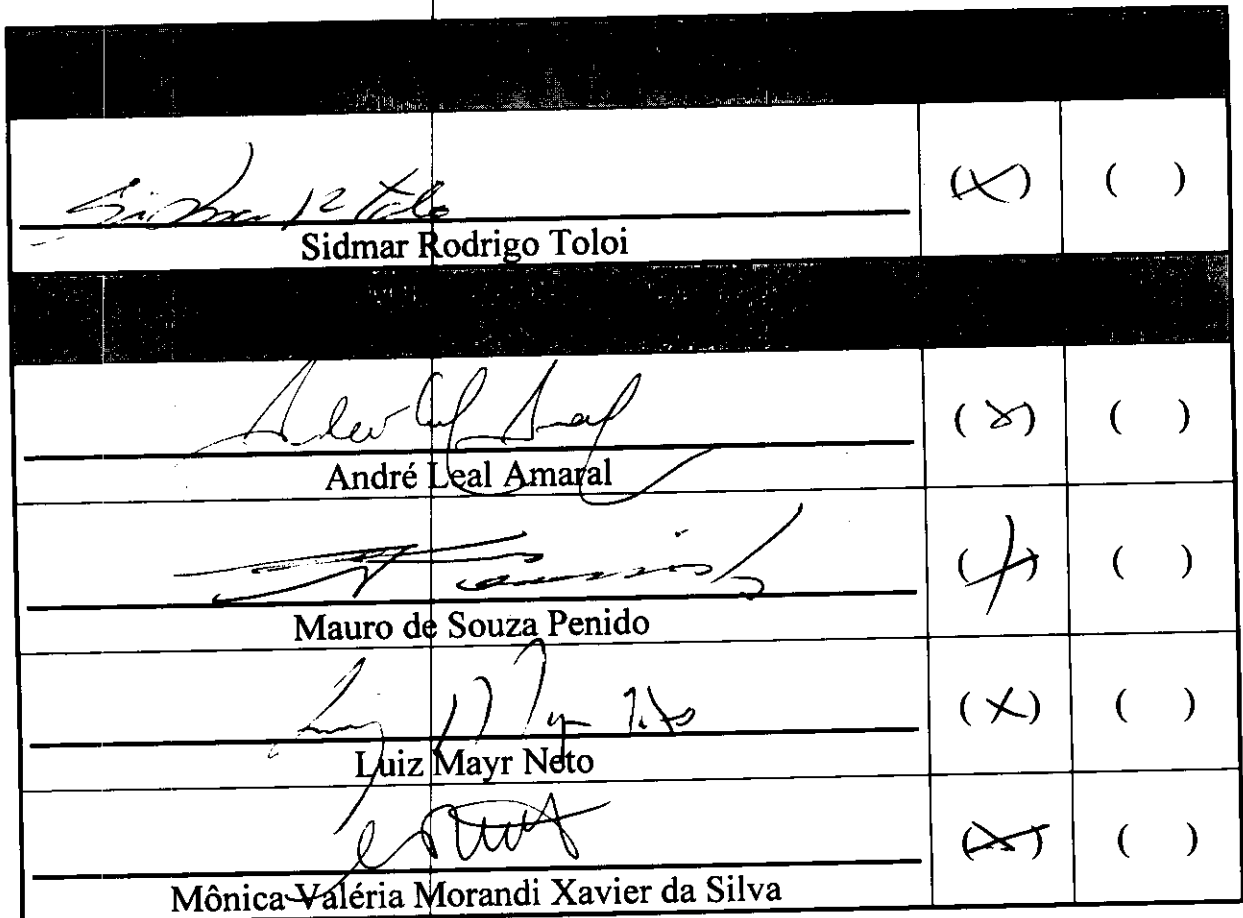 (X) ( )
Sidmar Rodrigo Toloi
(X) ( )
André Leal Amaral
(X) ( )
Mauro de Souza Penido
(X) ( )
Luiz Mayr Neto
(X) ( )
Mônica Valéria Morandi Xavier da Silva